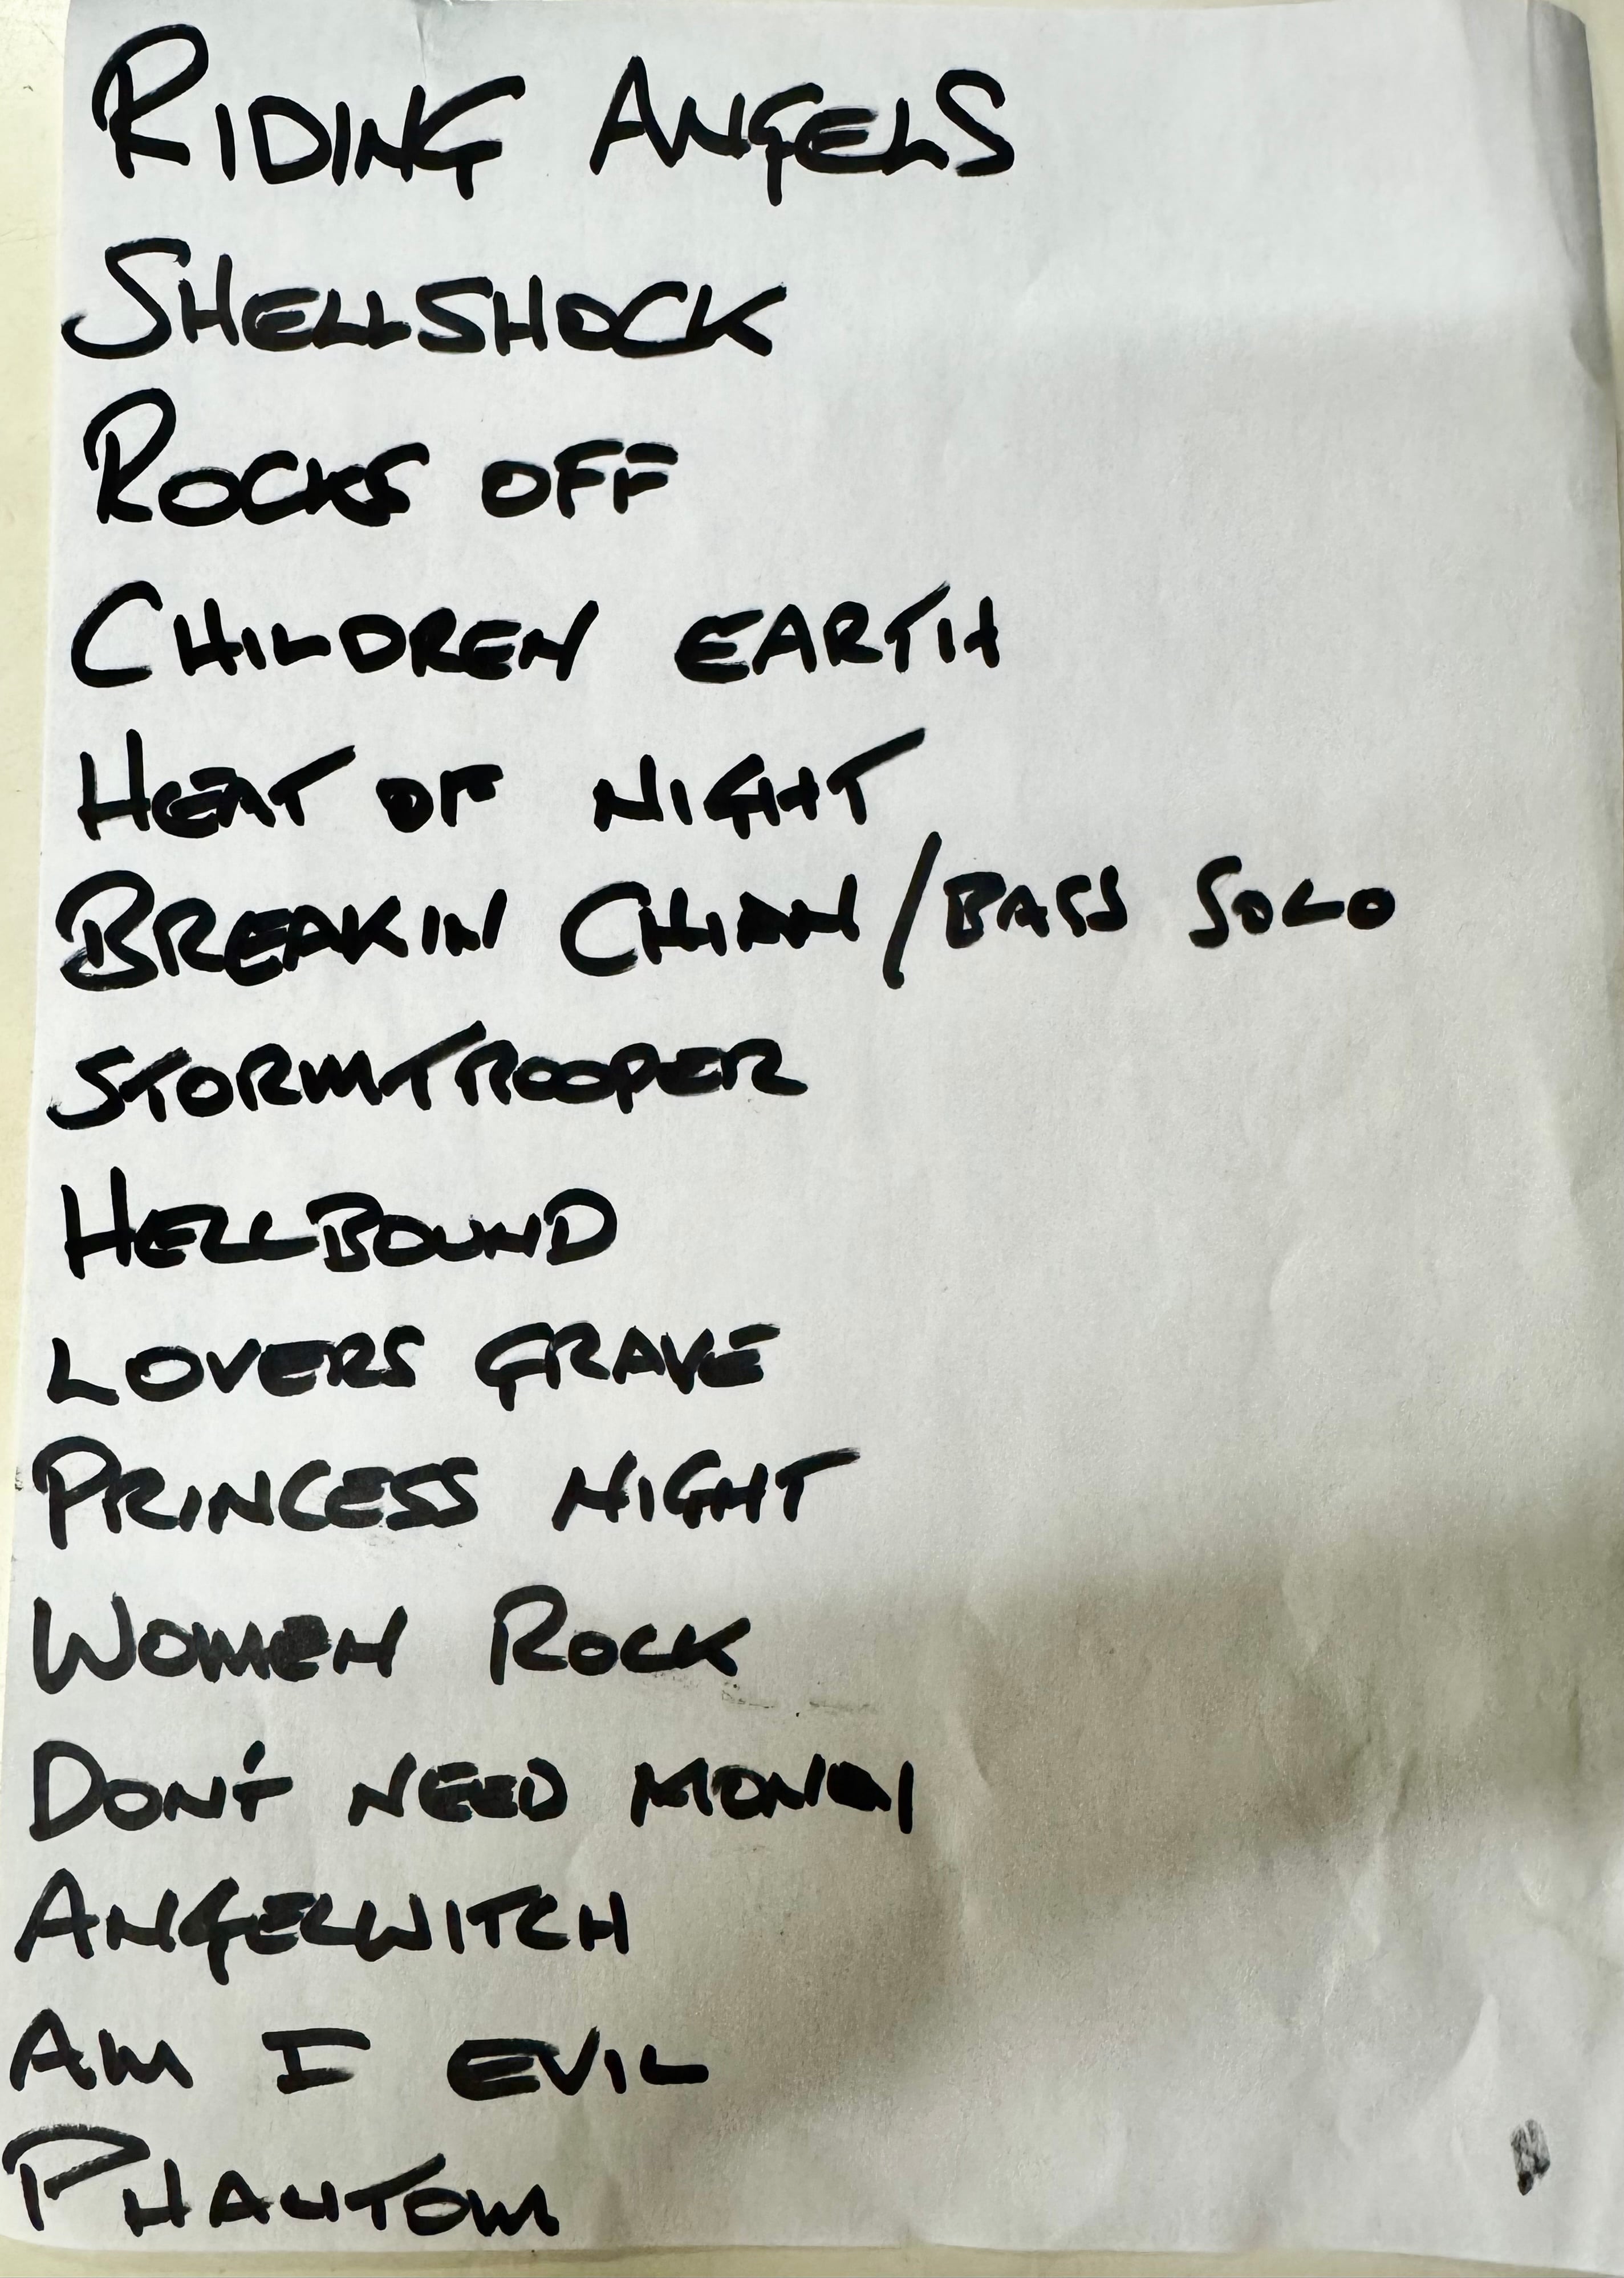 RIDING ANGELS
SHELLSHOCK
ROCKS OFF
CHILDREN EARTH
HEAT OF NIGHT
BREAKIN CHIAN/BASS SOLO
STORMTROOPER
HELLBOUND
LOVERS GRAVE
PRINCESS NIGHT
WOMEN ROCK
DON'T NEED MONEY
ANGELWITCH
AM I EVIL
PHANTOM